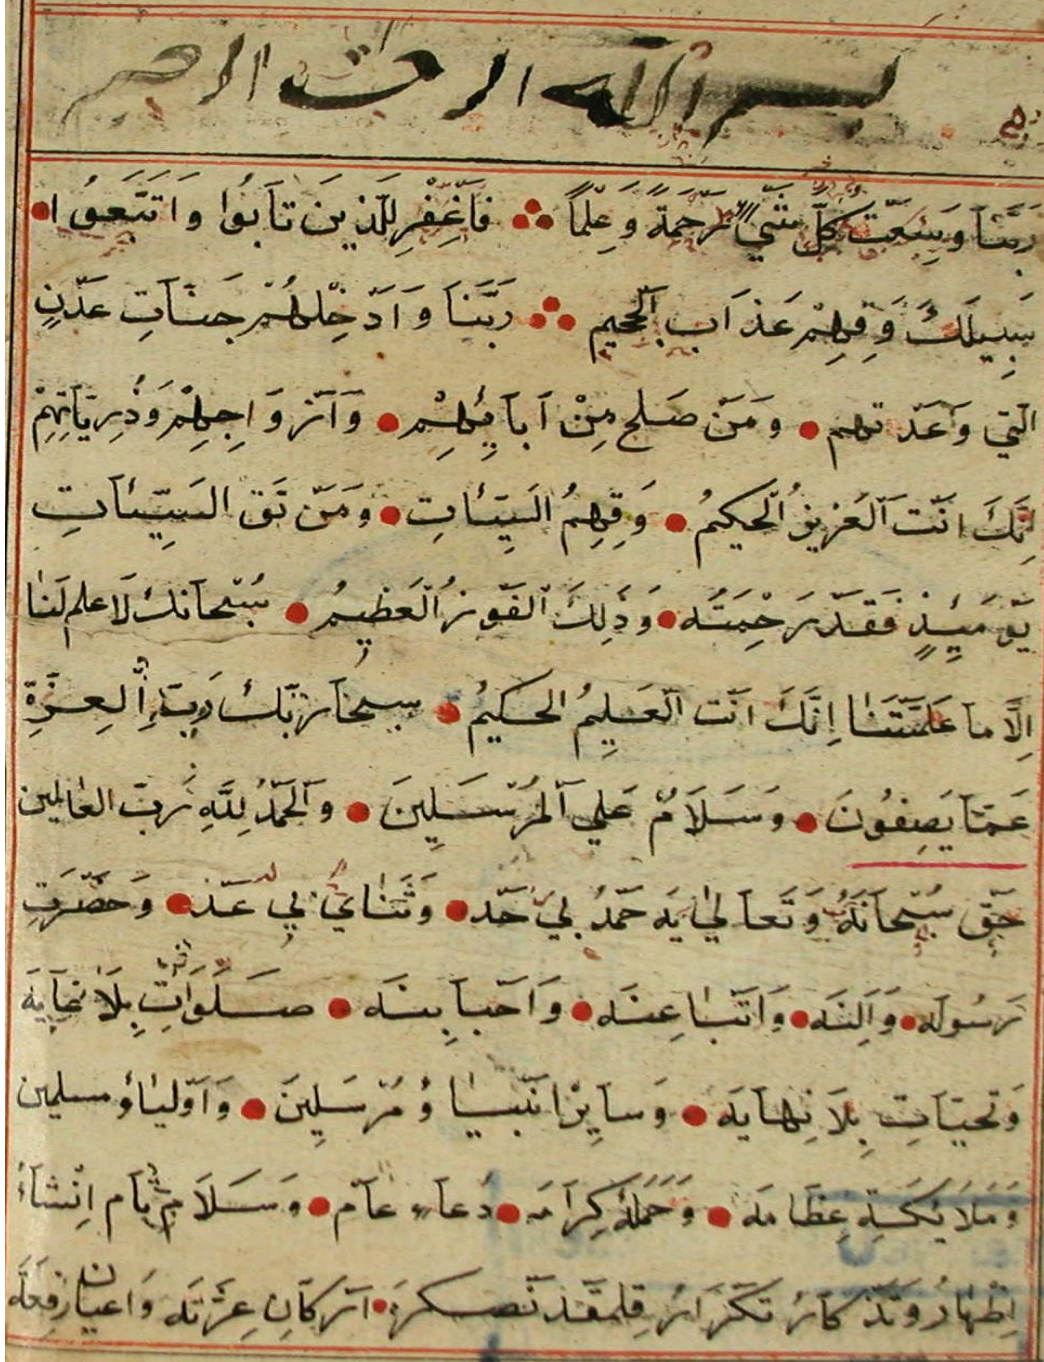 بسم الله الرحمن الرحيم
رَبَّنَا وَسِعْتَ كُلَّ شَيْءٍ رَحْمَةً وَعِلْمًا فَاغْفِرْ لِلَّذِينَ تَابُوا وَاتَّبَعُوا
سَبِيلَكَ وَقِهِمْ عَذَابَ الْجَحِيمِ رَبَّنَا وَاَدْخِلْهُمْ جَنَّاتِ عَدْنٍ
الَّتِي وَعَدْتَهُمْ وَمَنْ صَلَحَ مِنْ اَبَائِهِمْ وَاَزْوَاجِهِمْ وَذُرِّيَّاتِهِمْ
اِنَّكَ اَنْتَ الْعَزِيزُ الْحَكِيمُ وَقِهِمُ السَّيِّئَاتِ وَمَنْ تَقِ السَّيِّئَاتِ
يَوْمَئِذٍ فَقَدْ رَحِمْتَهُ وَذَلِكَ الْفَوْزُ الْعَظِيمُ سُبْحَانَكَ لَا عِلْمَ لَنَا
اِلَّا مَا عَلَّمْتَنَا اِنَّكَ اَنْتَ الْعَلِيمُ الْحَكِيمُ سبحان رَبِّكَ رَبِّ الْعِزَّةِ
عَمَّا يَصِفُونَ وَسَلَامٌ عَلَي الْمُرْسَلِينَ وَالْحَمْدُ لِلَّهِ رَبِّ الْعَالَمِين
حَقّ سُبْحَانَهُ وَتَعَالٰي يَه حَمْدُ بِي حَدّ وَثَنَايِ بِي عَدّ وَحَضْرَتِ
رَسُولَه وَاَلِنَه وَاَتْبَاعِنَه وَاَحْبَابِنَه صَلَوَاتِ بِلَا نِهَايَه
وَتَحِيَّاتِ بِلَا نِهَايَه وَسَايِرْ اَنْبِيَا وُ مُرْسَلِينَ وَاَوْلِيَاؤُ مسلمين
وَمَلَائِكَهِٔ عِظَامَه وَحَمَلَهِٔ كِرَامَه دُعَاءِ عَام وَسَلَامِ اِنْشَاءُ
اِظْهَارُ وَتَذْكَارُ تَكْرَارُ اَرْكَانِ عِزَّتَه وَاَعْيَانِ رِفْعَتَه